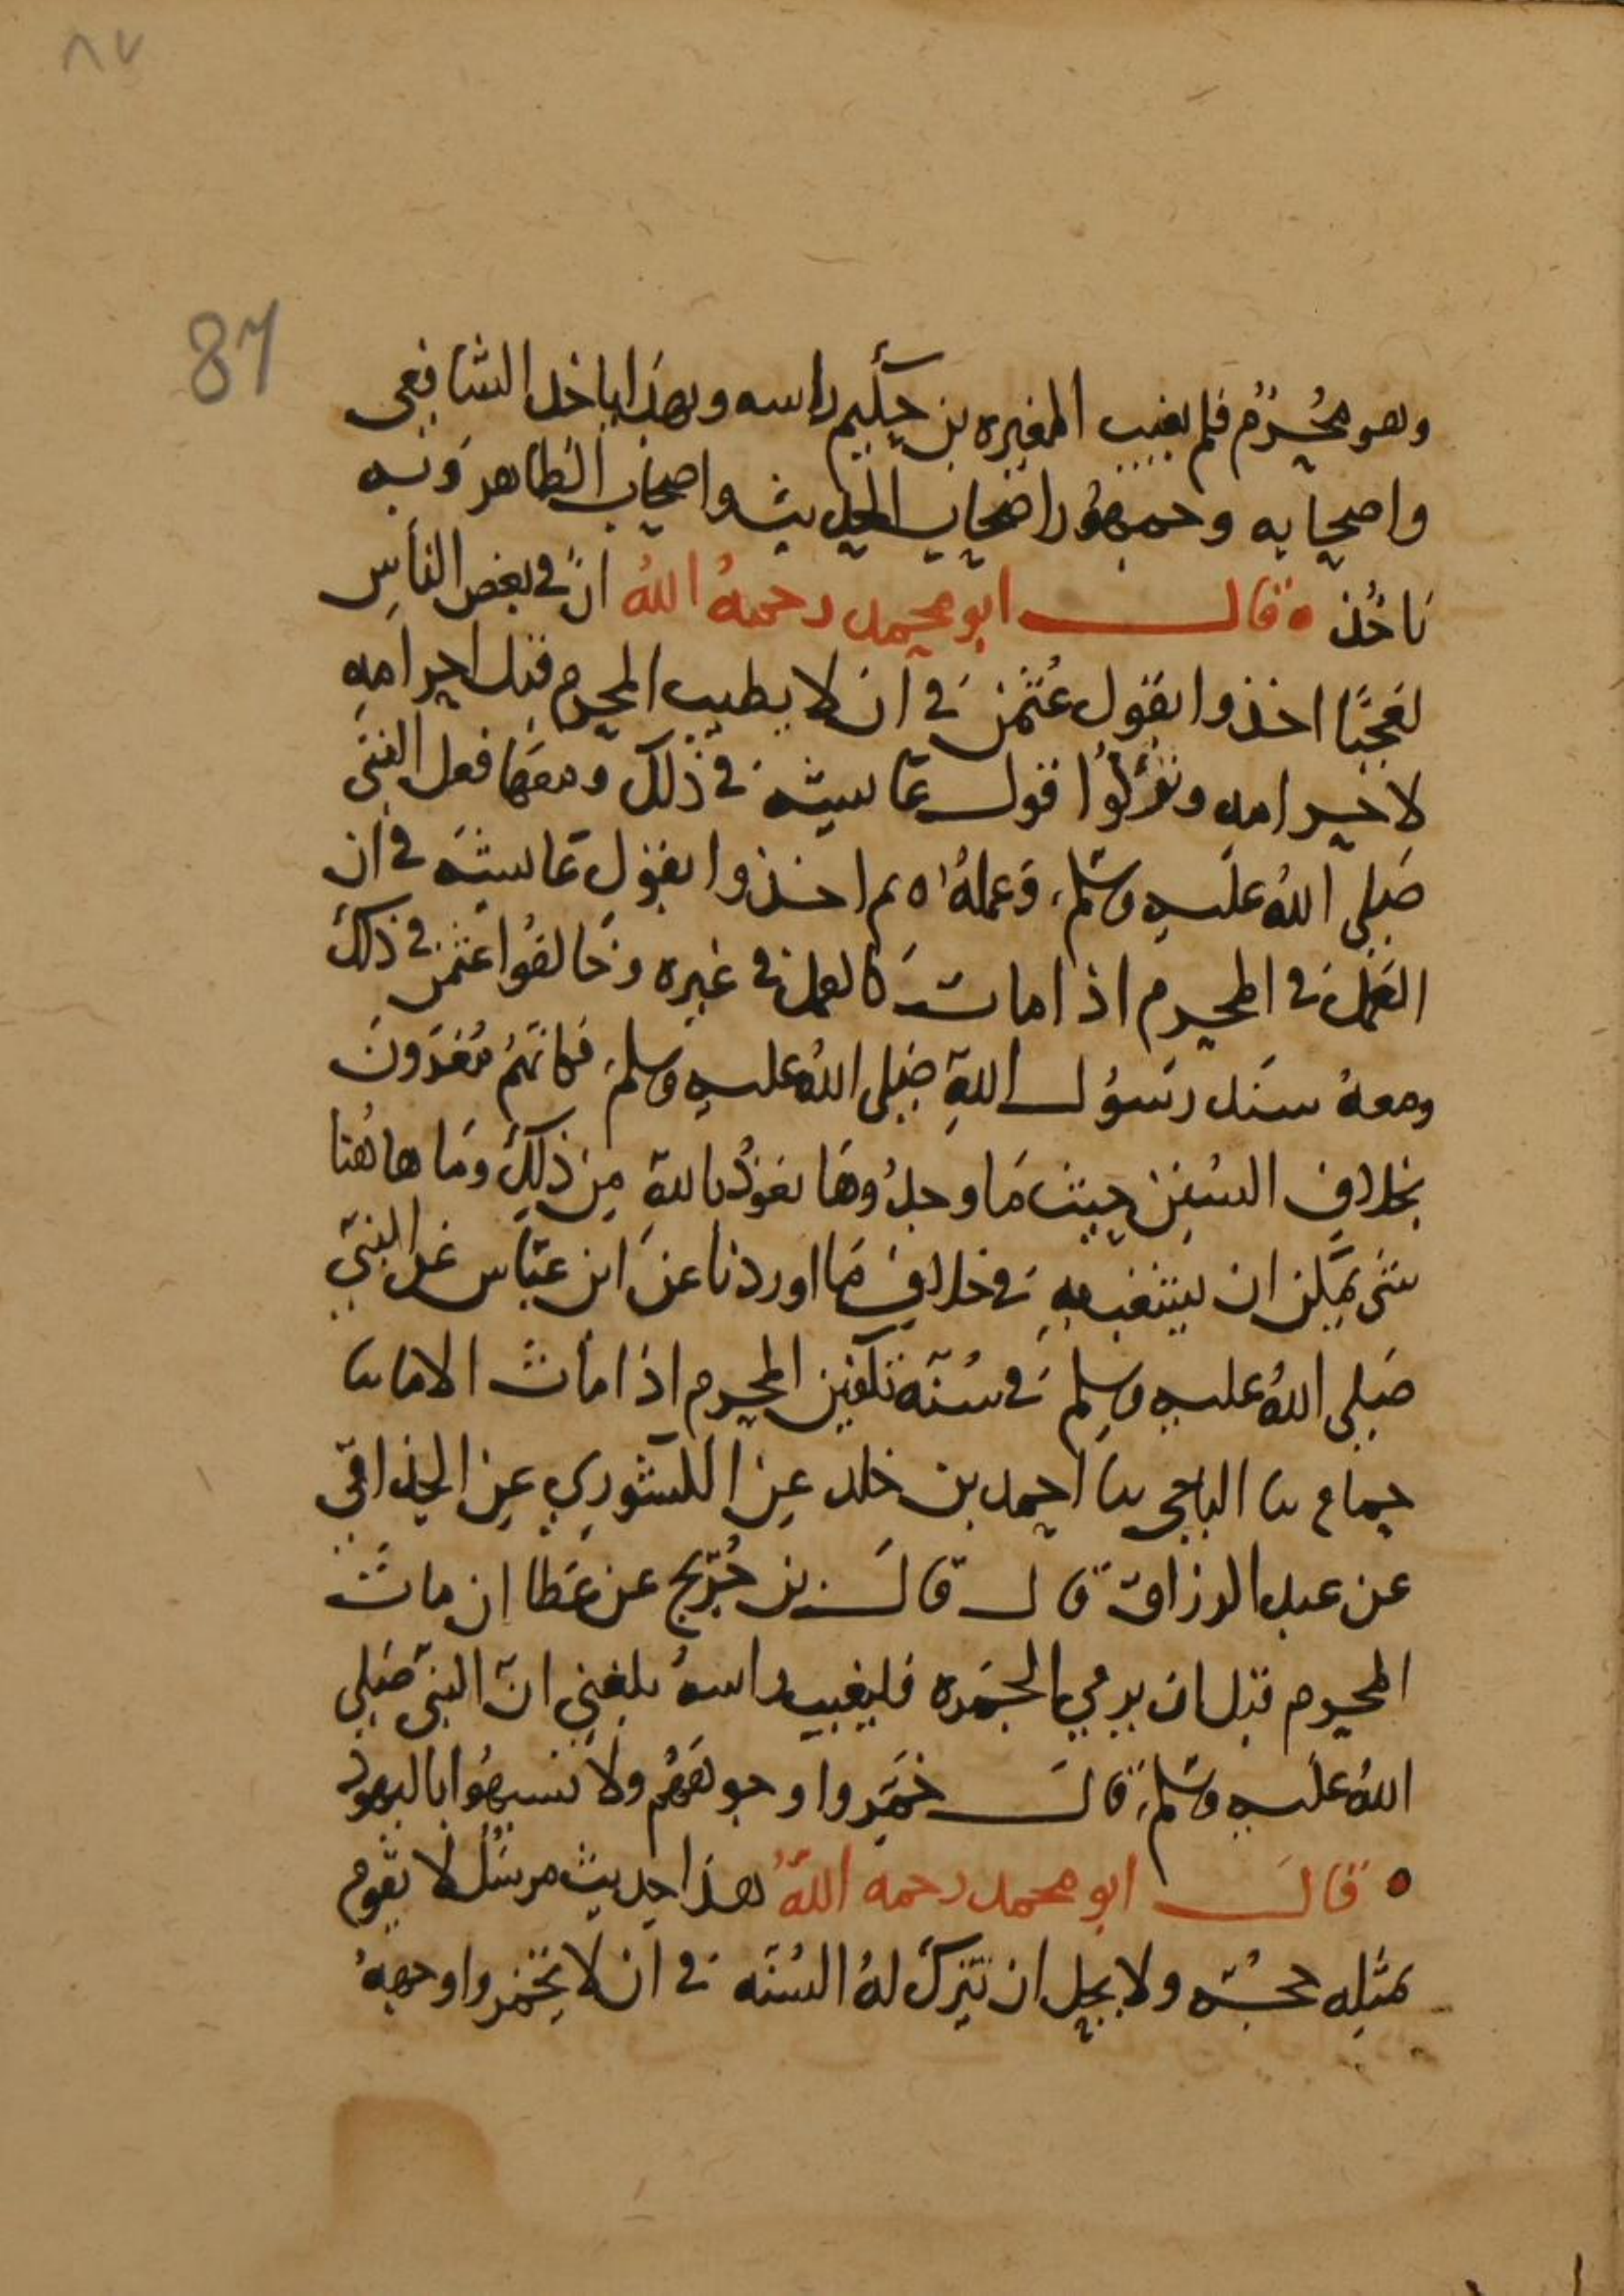 ٨٧
87
وهو محرم فلم يغيب المغيره بن حكيم راسه وبهذا ياخذ الشافعي
واصحابه وجمهور اصحاب الحديث واصحاب الظاهر وبه
ناخذ ۰ قال ابو محمد رحمه الله ان في بعض الناس
لعجبا اخذوا بقول عثمن في ان لا يطيب المحرم قبل احرامه
لاحرامه وتركوا قول عائشه في ذلك ومعها فعل النبي
صلى الله عليه وسلم وعمله ثم اخذوا بقول عائشه في ان
العمل في المحرم اذا مات كالعمل في غيره وخالفوا عثمن في ذلك
ومعه سند رسول الله صلى الله عليه وسلم فكانهم مغرون
بخلاف السنن حيث ما وجدوها نعوذ بالله من ذلك وما هاهنا
شي يمكن ان يشغب به في خلاف ما اوردنا عن ابن عباس عن النبي
صلى الله عليه وسلم في سنه تكفين المحرم اذا مات الا ما نا
حمام نا الباجي نا احمد بن خلد عن الكشوري عن الحذاقي
عن عبد الرزاق قال قال بن جريج عن عطا ان مات
المحرم قبل ان يرمي الجمره فليغيب راسه بلغني ان النبي صلى
الله عليه وسلم قال خمروا وجوههم ولا تشبهوا باليهود
۰ قال ابو محمد رحمه الله هذا حديث مرسل لا تقوم
بمثله حجه ولا يحل ان تترك له السنه في ان لا يخمروا وجهه